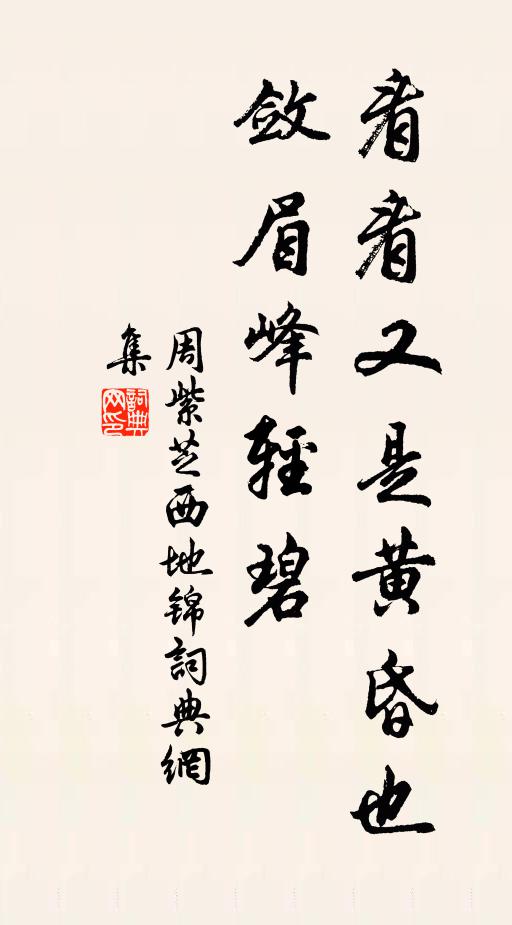 看看又是黄昏也
敛眉峰輕碧
周紫芝西地锦詞典網
集
詞典
网印